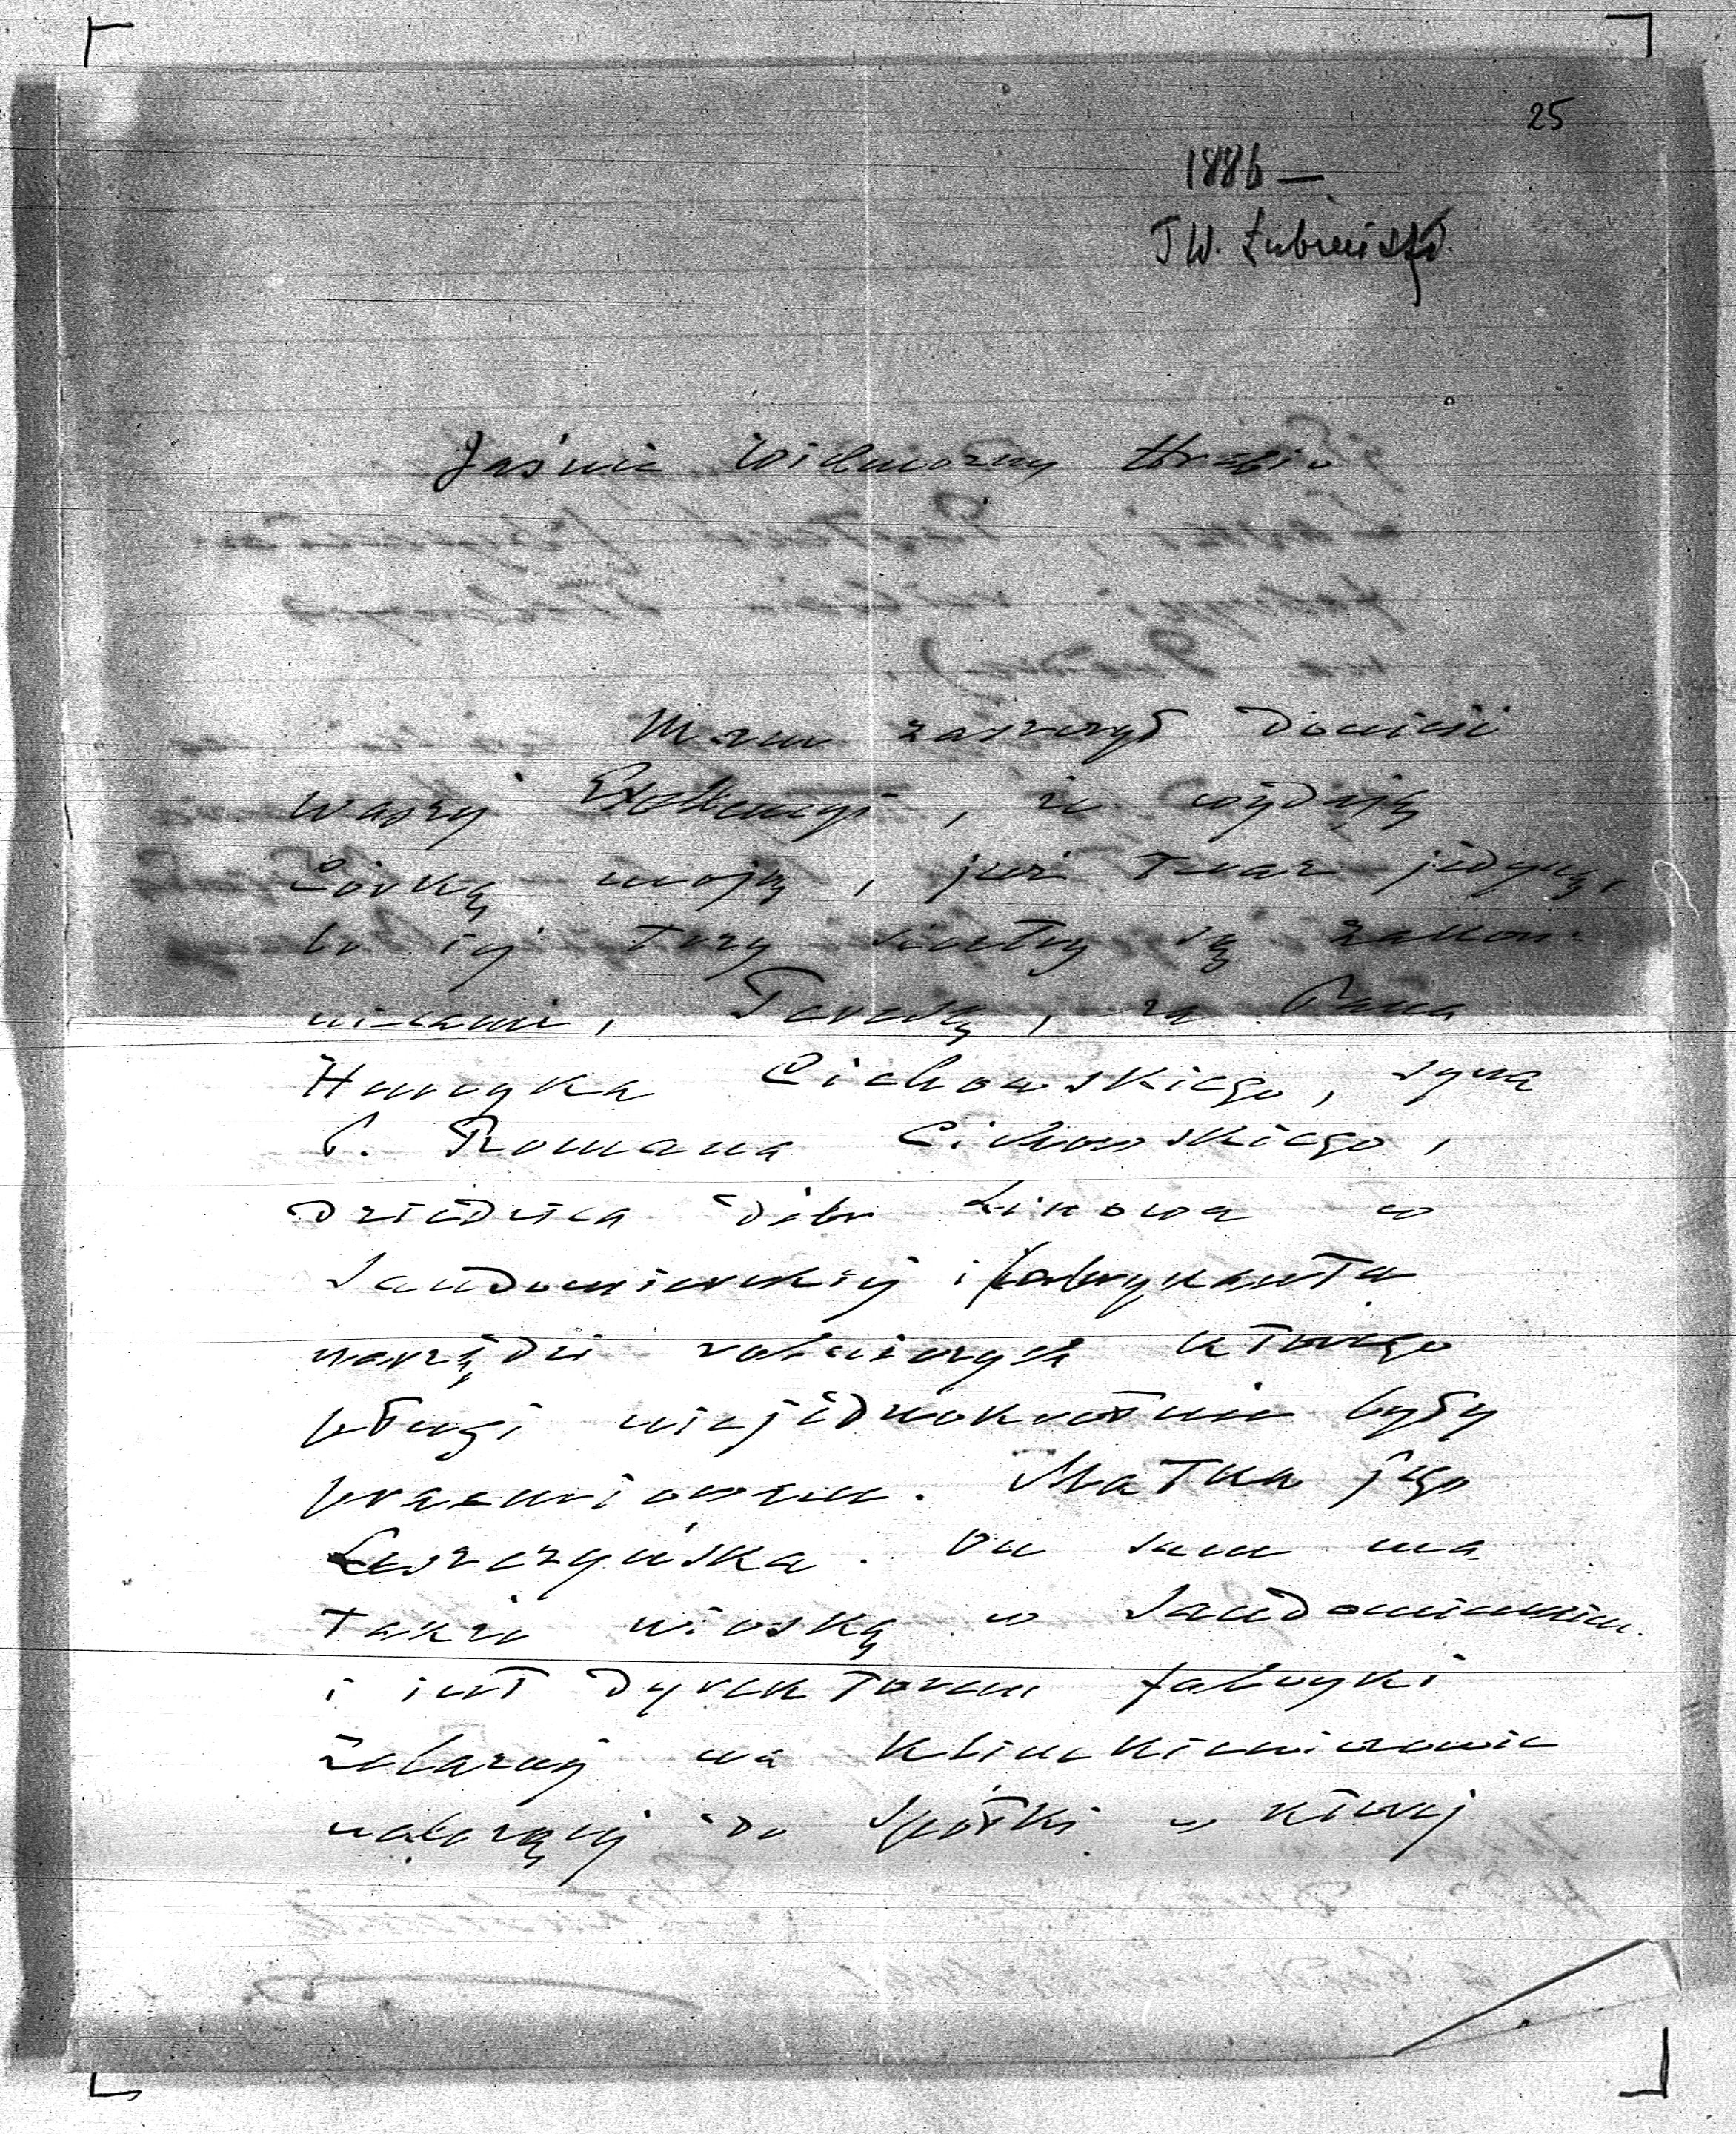 25
1886 —
T W. Łubieński.
Jaśnie Wielmożny Hrabio
Mam zaszczyt donieść
waszej Excellencyi, że wydaję
Córkę moją, już teraz jedyną,
bo jej trzy siostry są zakon-
nicami, Teresę, za Pana
Henryka Cichowskiego, syna
P. Romana Cichowskiego,
Dziedzica dóbr Linowa w
Sandomierskiej i fabrykanta
narzędzi rolniczych którego
pługi niejednokrotnie były
praemiowane. Matka jego
Leszczyńska. On sam ma
także wioskę w Sandomierskiem
i jest Dyrektorem fabryki
Żelaznej na Klimkiewiczowie
należącej do Spółki w której